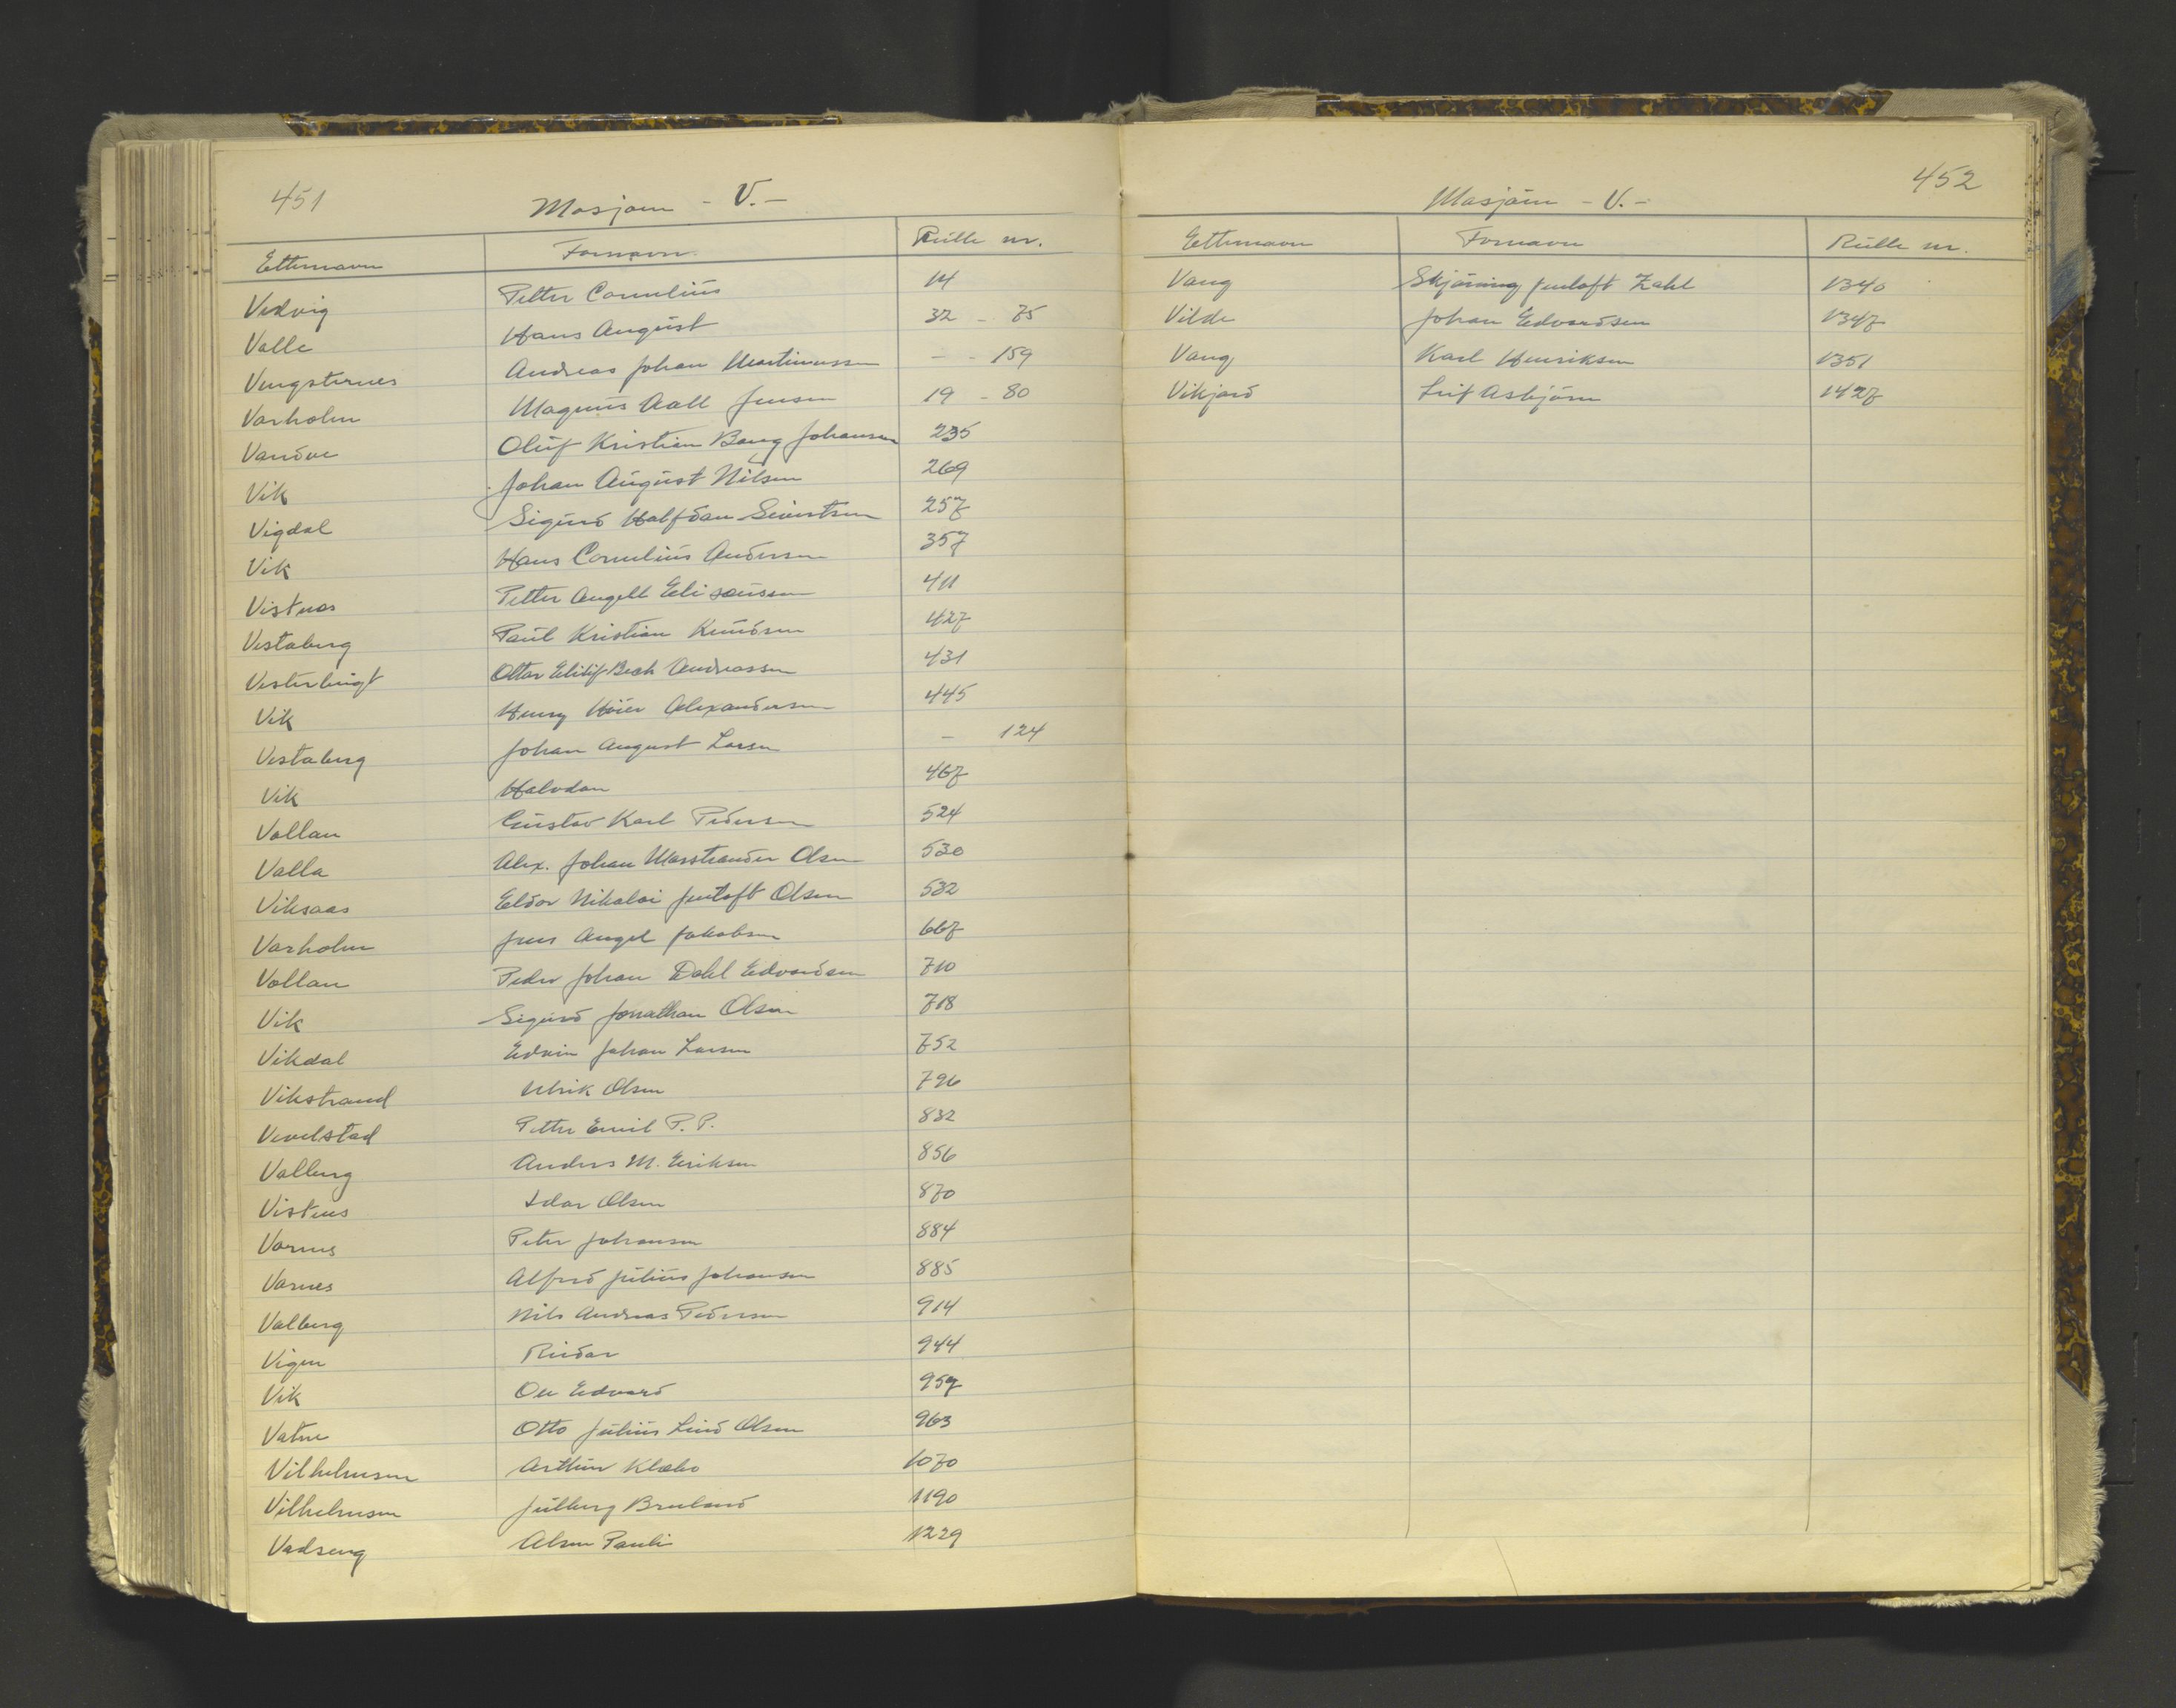 451
Mosjøen - V. -
Etternavn Fornavn Rulle nr.
Vedvig Petter Cornelius 14
Valle Hans August 32 - 75
Vengsternes Andreas Johan Martinussen - - 159
Varholm Magnus Aall Jensen 19 - 80
Olüf Kristian Bang Johansen 235
Vik Johan Aügüst Nilsen 269
Vigdal Sigürd Halfdan Sivertsen 257
Vik Hans Cornelius Andersen 357
Vistnes Petter Angell Eliseüssen 411
Vestaberg Paül Kristian Knüdsen 427
Vesterbugt Ottar Eilif Bech Andreassen 431
Vik Henry Höier Alexandersen 445
Vestaberg Johan August Larsen - 124
Vik Halvdan 467
Vollan Güstav Karl Pedersen 524
Valla Alex. Johan Masstrander Olsen 530
Viksaas Eldor Nikolai Jentoft Olsen 532
Varholm Jens Angel Jakobsen 667
Vollan Peder Johan Dahl Edvardsen 710
Vik Sigürd Jonathan Olsen 718
Vikdal Edvin Johan Larsen 752
Vikstrand Ulrik Olsen 796
Vevelstad Petter Emil P. P. 832
Valberg Anders M. Eriksen 856
Vistnes Idar Olsen 870
Varnes Peter Johansen 884
Varnes Alfred Jülius Johansen 885
Valberg Nils Andreas Pedersen 914
Vigen Reidar 944
Vik Ole Edvard 957
Vatne Otto Jülius Lind Olsen 963
Vilhelmsen Arthur Klæbo 1070
Vilhelmsen Julberg Bruland 1190
Vadseng Pauli 1229
452
Mosjöen - V. -
Etternavn Fornavn Rülle nr.
Vang Skjöning Jentoft Zahl 1340
Vilde Johan Edvardsen 1347
Vang Karl Henriksen 1351
Vikjord Leif Asbjörn 1427